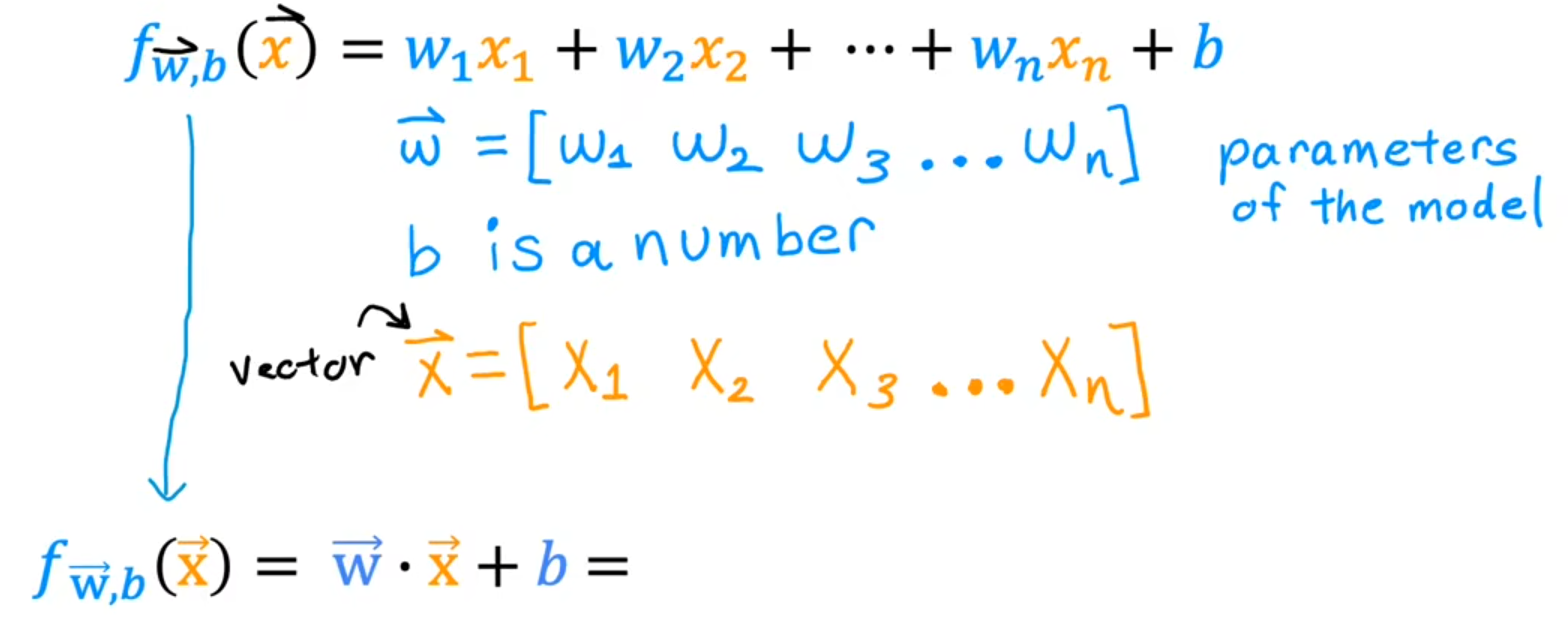 f_{w⃗,b}(x⃗) = w₁x₁ + w₂x₂ + ⋯ + wₙxₙ + b
w⃗ = [w₁ w₂ w₃ ... wₙ]
parameters
of the model
b is a number
vector
x⃗ = [x₁ x₂ x₃ ... xₙ]
f_{w⃗,b}(x⃗) = w⃗ · x⃗ + b =